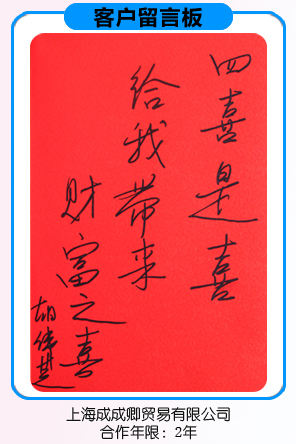 客户留言板
四喜是喜
给我带来
财富之喜
胡伟楚
上海成成卿贸易有限公司
合作年限：2年